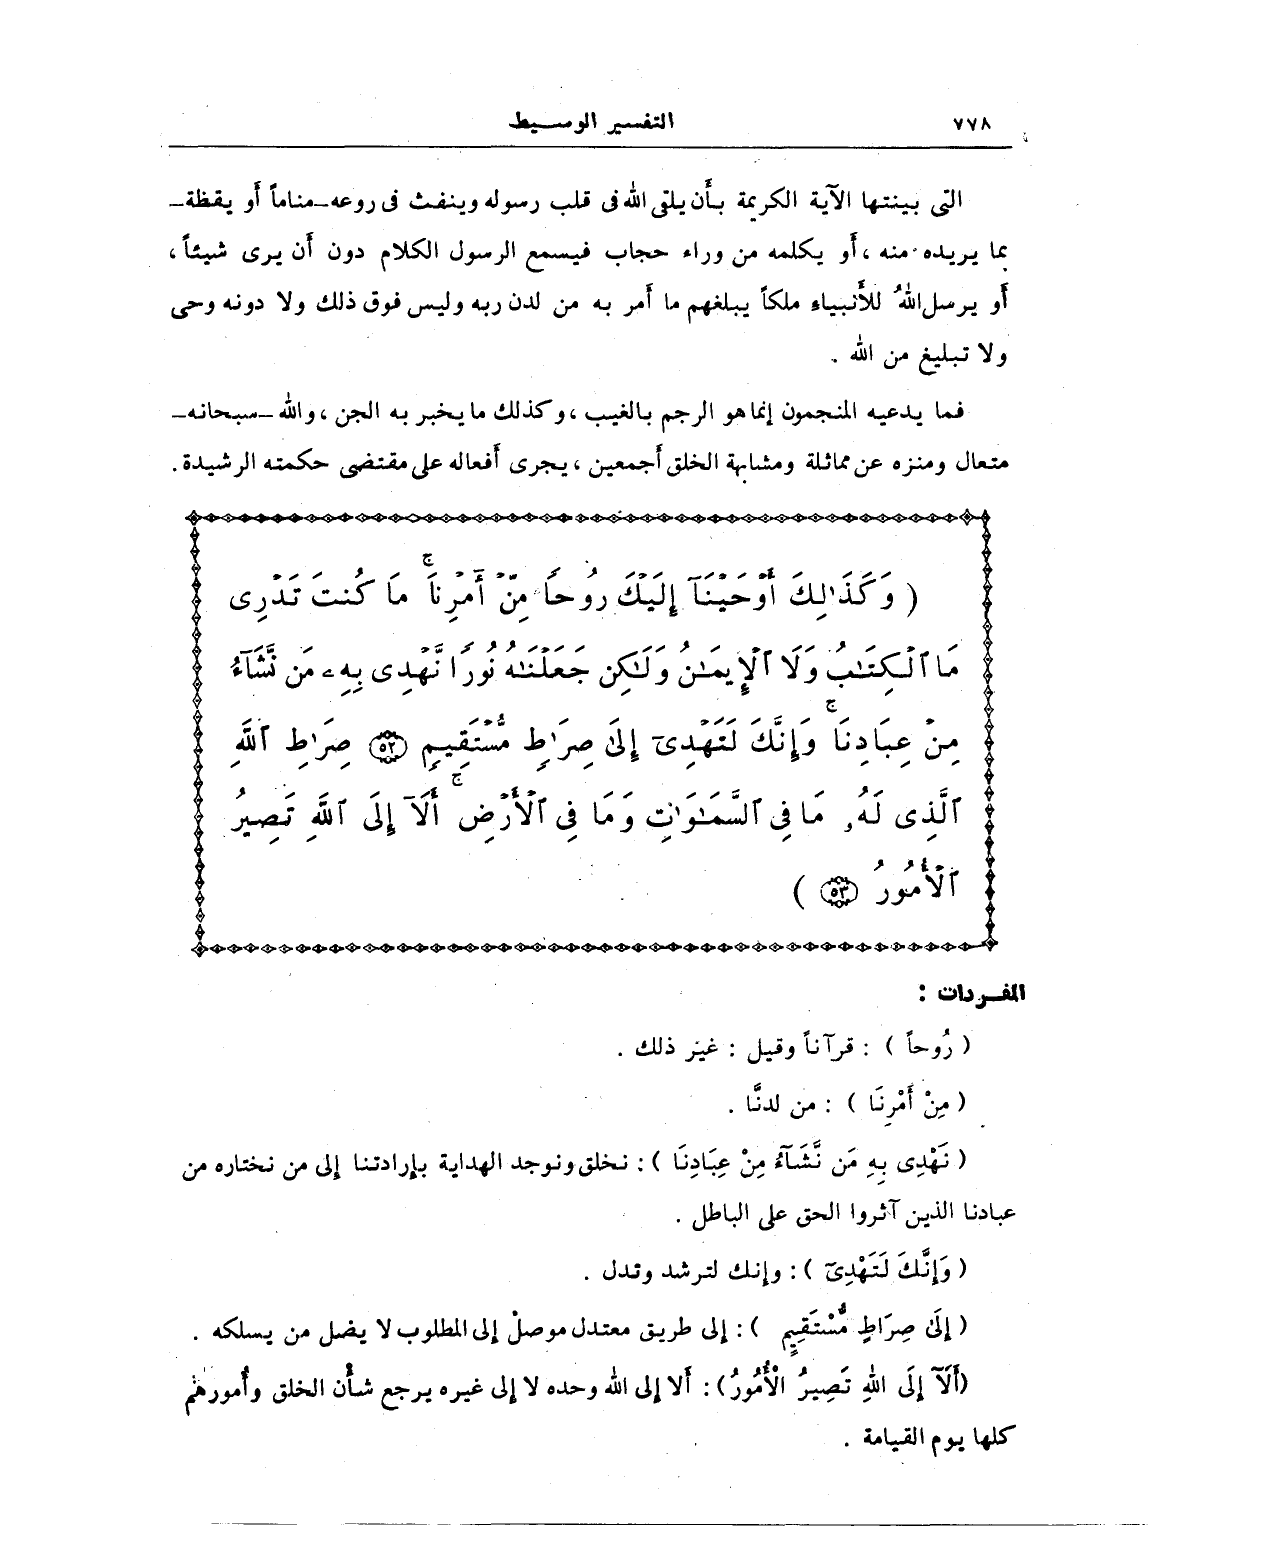 ٧٧٨ التفسير الوسيط
التى بينتها الآية الكريمة بأن يلقى الله فى قلب رسوله وينفث فى روعه ـ مناماً أو يقظة ـ
بما يريده منه ، أو يكلمه من وراء حجاب فيسمع الرسول الكلام دون أن يرى شيئاً ،
أو يرسل اللهُ للأنبياء ملكاً يبلغهم ما أمر به من لدن ربه وليس فوق ذلك ولا دونه وحى
ولا تبليغ من الله .
فما يدعيه المنجمون إنما هو الرجم بالغيب ، وكذلك ما يخبر به الجن ، والله ـ سبحانه ـ
متعال ومنزه عن مماثلة ومشابهة الخلق أجمعين ، يجرى أفعاله على مقتضى حكمته الرشيدة .
( وَكَذَٰلِكَ أَوْحَيْنَآ إِلَيْكَ رُوحًا مِّنْ أَمْرِنَا ۚ مَا كُنتَ تَدْرِى
مَا ٱلْكِتَٰبُ وَلَا ٱلْإِيمَٰنُ وَلَٰكِن جَعَلْنَٰهُ نُورًا نَّهْدِى بِهِۦ مَن نَّشَآءُ
مِنْ عِبَادِنَا ۚ وَإِنَّكَ لَتَهْدِىٓ إِلَىٰ صِرَٰطٍ مُّسْتَقِيمٍ ٥٢ صِرَٰطِ ٱللَّهِ
ٱلَّذِى لَهُۥ مَا فِى ٱلسَّمَٰوَٰتِ وَمَا فِى ٱلْأَرْضِ ۚ أَلَآ إِلَى ٱللَّهِ تَصِيرُ
ٱلْأُمُورُ ٥٣ )
المفردات :
( رُوحاً ) : قرآناً وقيل : غير ذلك .
( مِنْ أَمْرِنَا ) : من لدنَّا .
( نَهْدِى بِهِ مَن نَّشَآءُ مِنْ عِبَادِنَا ) : نخلق ونوجد الهداية بإرادتنا إلى من نختاره من
عبادنا الذين آثروا الحق على الباطل .
( وَإِنَّكَ لَتَهْدِىٓ ) : وإنك لترشد وتدل .
( إِلَىٰ صِرَاطٍ مُّسْتَقِيمٍ ) : إلى طريق معتدل موصلْ إلى المطلوب لا يضل من يسلكه .
( أَلَآ إِلَى اللهِ تَصِيرُ الْأُمُورُ ) : ألا إلى الله وحده لا إلى غيره يرجع شأن الخلق وأُمورهم
كلها يوم القيامة .